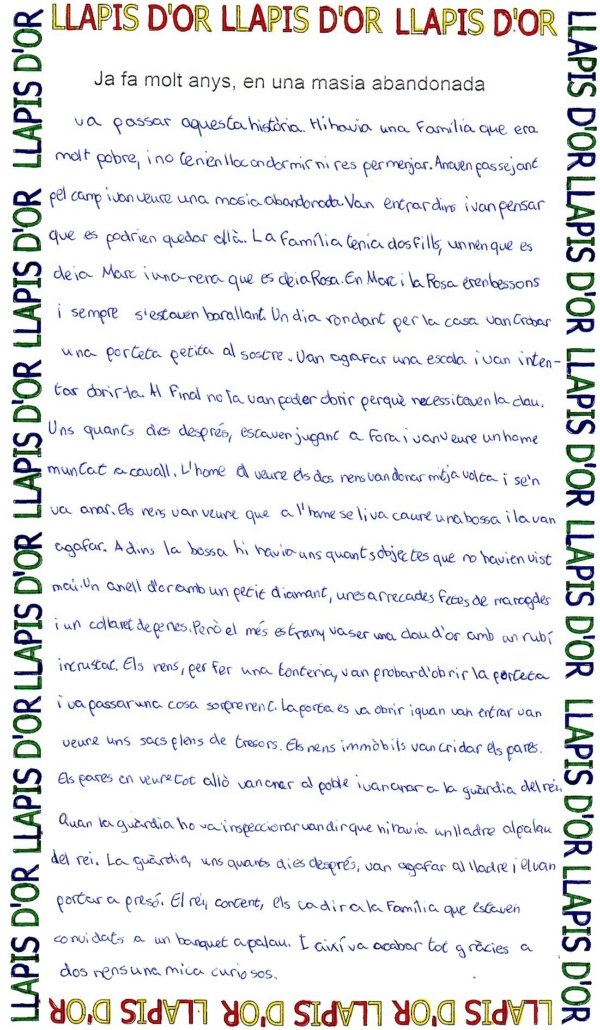 LLAPIS D'OR LLAPIS D'OR LLAPIS D'OR
Ja fa molt anys, en una masia abandonada
va passar aquesta història. Hi havia una família que era
molt pobre, i no tenien lloc on dormir ni res per menjar. Anaven passejant
pel camp i van veure una masia abandonada. Van entrar dins i van pensar
que es podrien quedar allà. La família tenia dos fills, un nen que es
deia Marc i una nena que es deia Rosa. En Marc i la Rosa eren bessons
i sempre s'estaven barallant. Un dia rondant per la casa van trobar
una porteta petita al sostre. Van agafar una escala i van inten-
tar obrir-la. Al final no la van poder obrir perquè necessitaven la clau.
Uns quants dies després, estaven jugant a fora i van veure un home
muntat a cavall. L'home al veure els dos nens van donar mitja volta i se'n
va anar. Els nens van veure que a l'home se li va caure una bossa i la van
agafar. A dins la bossa hi havia uns quants objectes que no havien vist
mai. Un anell d'or amb un petit diamant, unes arrecades fetes de maragdes
i un collaret de perles. Però el més estrany va ser una clau d'or amb un rubí
incrustat. Els nens, per fer una tonteria, van probar d'obrir la porteta
i va passar una cosa sorprenent. La porta es va obrir i quan van entrar van
veure uns sacs plens de tresors. Els nens immòbils van cridar els pares.
Els pares en veure tot allò van anar al poble i van anar a la guàrdia del rei.
Quan la guàrdia ho va inspeccionar van dir que hi havia un lladre al palau
del rei. La guàrdia, uns quants dies després, van agafar al lladre i el van
portar a presó. El rei, content, els va dir a la família que estaven
convidats a un banquet a palau. I així va acabar tot gràcies a
dos nens una mica curiosos.
LLAPIS D'OR LLAPIS D'OR LLAPIS D'OR LLAPIS D'OR LLAPIS D'OR LLAPIS D'OR
LLAPIS D'OR LLAPIS D'OR LLAPIS D'OR LLAPIS D'OR LLAPIS D'OR LLAPIS D'OR
LLAPIS D'OR LLAPIS D'OR LLAPIS D'OR LLAPIS D'OR